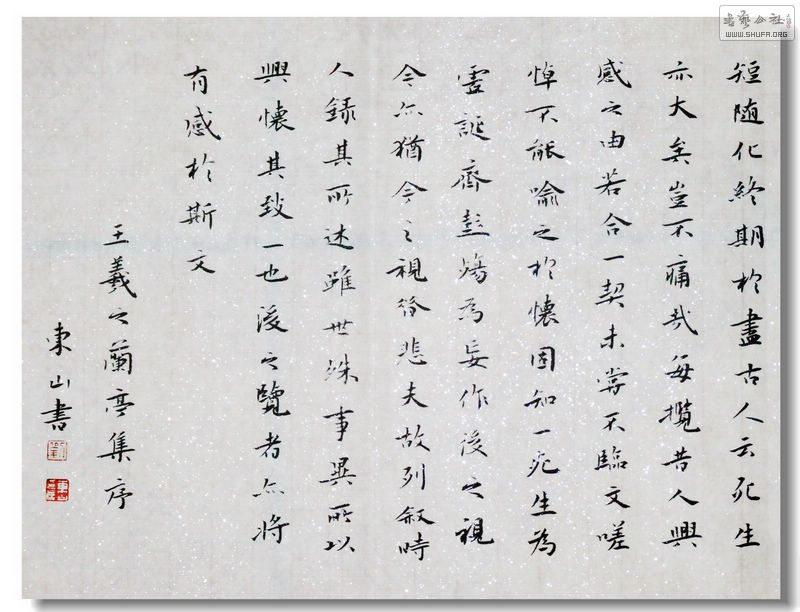 短随化終期於盡古人云死生
亦大矣豈不痛哉每攬昔人興
感之由若合一契未嘗不臨文嗟
悼不能喻之於懷固知一死生為
虛誕齊彭殤為妄作後之視
今亦猶今之視昔悲夫故列敘時
人錄其所述雖世殊事異所以
興懷其致一也後之覽者亦將
有感於斯文
王羲之蘭亭集序
東山書
公社
WWW.SHUFA.ORG